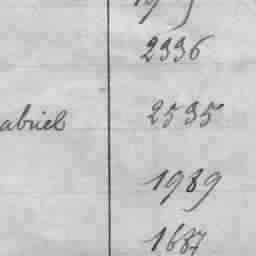 2336
abriel 2535
1989
1687